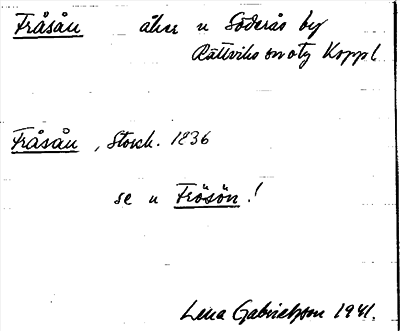 Fråsån åker u Söderås by
Rättviks sn o tg Koppl
Fråsån, Storsk. 1836
se u Frösön!
Lena Gabrielsson 1941.